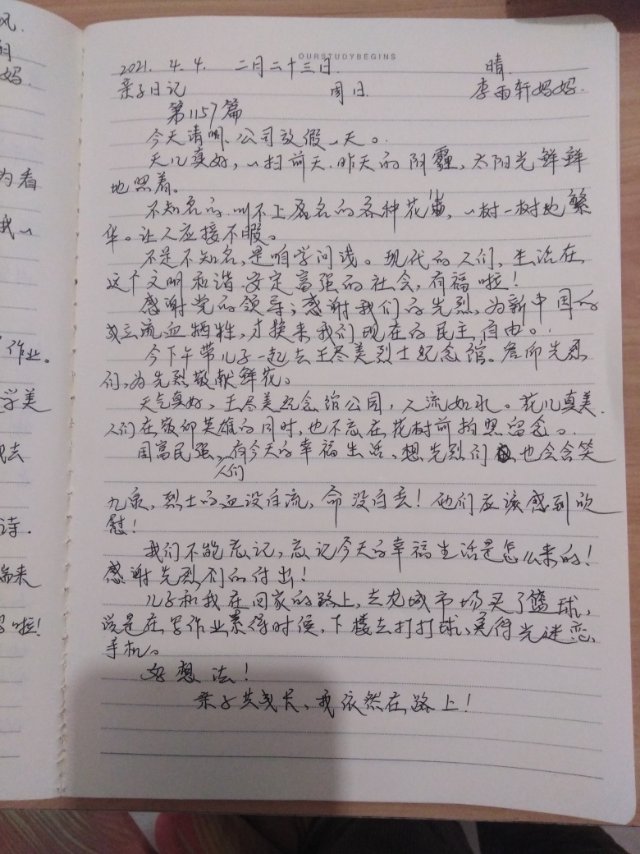 风.
妈.
为看
我一
作业。
学美
诗.
啦!
OURSTUDYBEGINS
2021. 4. 4. 二月二十三日. 晴.
亲子日记 周日. 李雨轩妈妈.
第1157篇
今天清明. 公司放假一天。
天儿真好,一扫前天.昨天的阴霾,太阳光鲜鲜
地照着。
不知名的.叫不上名的各种花儿,一树一树地繁
华。让人应接不暇。
不是不知名,是咱学问浅。现代的人们,生活在
这个文明和谐安定富强的社会,有福啦!
感谢党的领导;感谢我们的先烈,为新中国的
成立流血牺牲,才换来我们现在的民主自由。
今下午带儿子一起去王尽美烈士纪念馆。瞻仰先烈
们,为先烈敬献鲜花。
天气真好,王尽美纪念馆公园,人流如水。花儿真美.
人们在敬仰英雄的同时,也不忘在花树前拍照留念。
国富民强,人们有今天的幸福生活,想先烈们也会含笑
九泉,烈士的血没白流,命没白丢!他们应该感到欣
慰!
我们不能忘记,忘记今天的幸福生活是怎么来的!
感谢先烈们的付出!
儿子和我在回家的路上,去龙城市场买了篮球,
说是在写作业累得时候,下楼去打打球,免得光迷恋
手机。
好想法!
亲子共成长,我依然在路上!